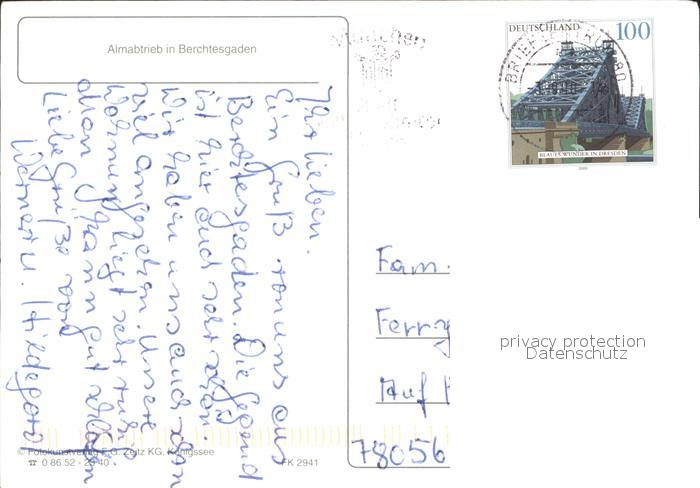 Almabtrieb in Berchtesgaden
München
DEUTSCHLAND 100
BRIEFZENTRUM 80
BLAUES WUNDER IN DRESDEN
Ihr Lieben.
Ein Gruß von uns aus
Berchtesgaden. Die Gegend
ist hier auch sehr schön.
Wir haben uns auch schon
viel angesehen. Unsere
Wohnung liegt sehr ruhig
man kann gut
Liebe Grüße von
Werner u. Hildegard
Fam.
Ferry
Auf
78056
privacy protection
Datenschutz
© Fotokunstverlag F. G. Zeitz KG, Königssee
☎ 0 86 52 - 23 40
FK 2941